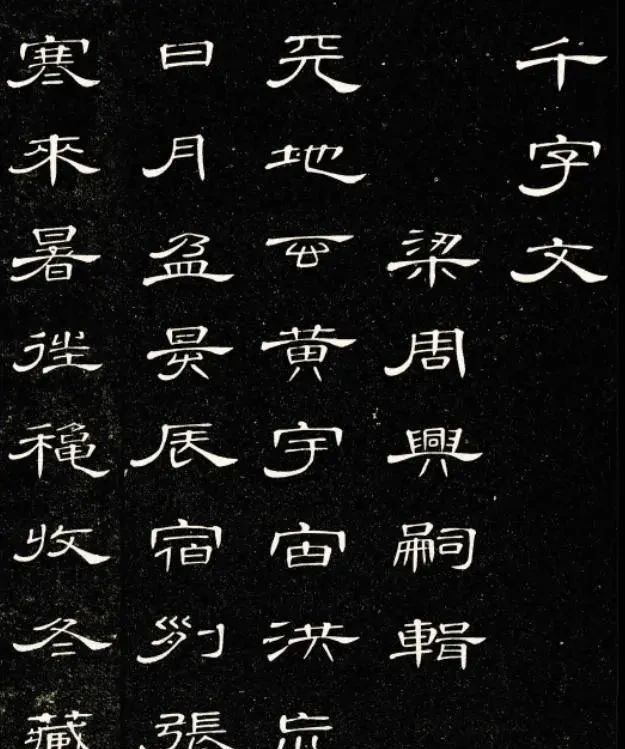 千字文
梁周興嗣輯
天地玄黃宇宙洪荒
日月盈昃辰宿列張
寒來暑往穐收冬藏